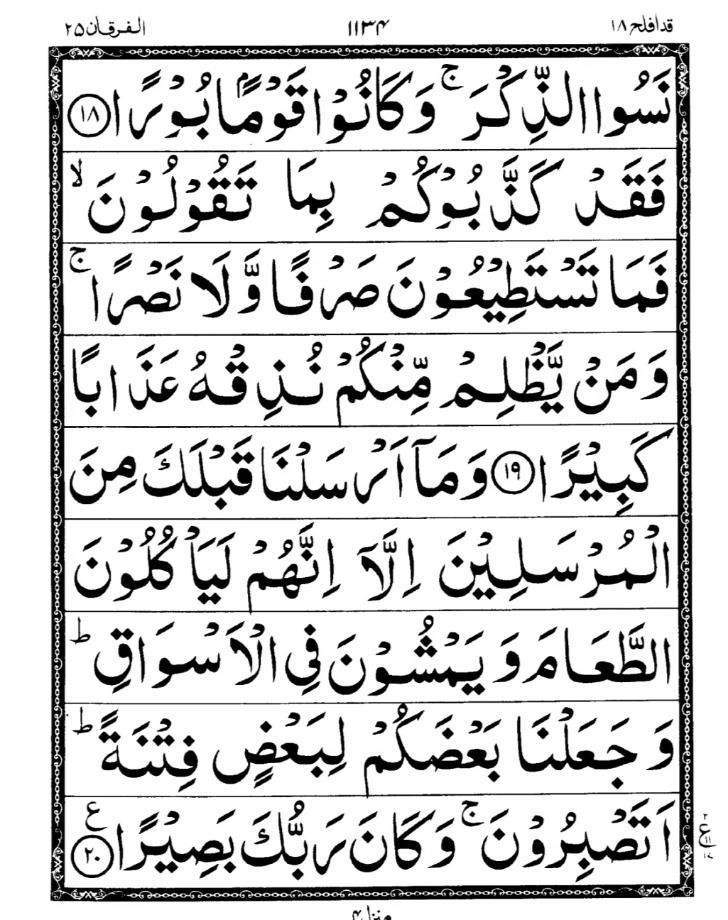 قدافلح ۱۸ ۱۱۳۴ الفرقان ۲۵
نَسُوا الذِّكْرَ ۚ وَكَانُوْا قَوْمًۢا بُوْرًا ۱۸
فَقَدْ كَذَّبُوْكُمْ بِمَا تَقُوْلُوْنَ ۙ
فَمَا تَسْتَطِيْعُوْنَ صَرْفًا وَّلَا نَصْرًا ۚ
وَمَنْ يَّظْلِمْ مِّنْكُمْ نُذِقْهُ عَذَابًا
كَبِيْرًا ۱۹ وَمَآ اَرْسَلْنَا قَبْلَكَ مِنَ
الْمُرْسَلِيْنَ اِلَّآ اِنَّهُمْ لَيَاْكُلُوْنَ
الطَّعَامَ وَيَمْشُوْنَ فِي الْاَسْوَاقِ ؕ
وَجَعَلْنَا بَعْضَكُمْ لِبَعْضٍ فِتْنَةً ؕ
اَتَصْبِرُوْنَ ۚ وَكَانَ رَبُّكَ بَصِيْرًا ۲۰ ع
منزل ۴